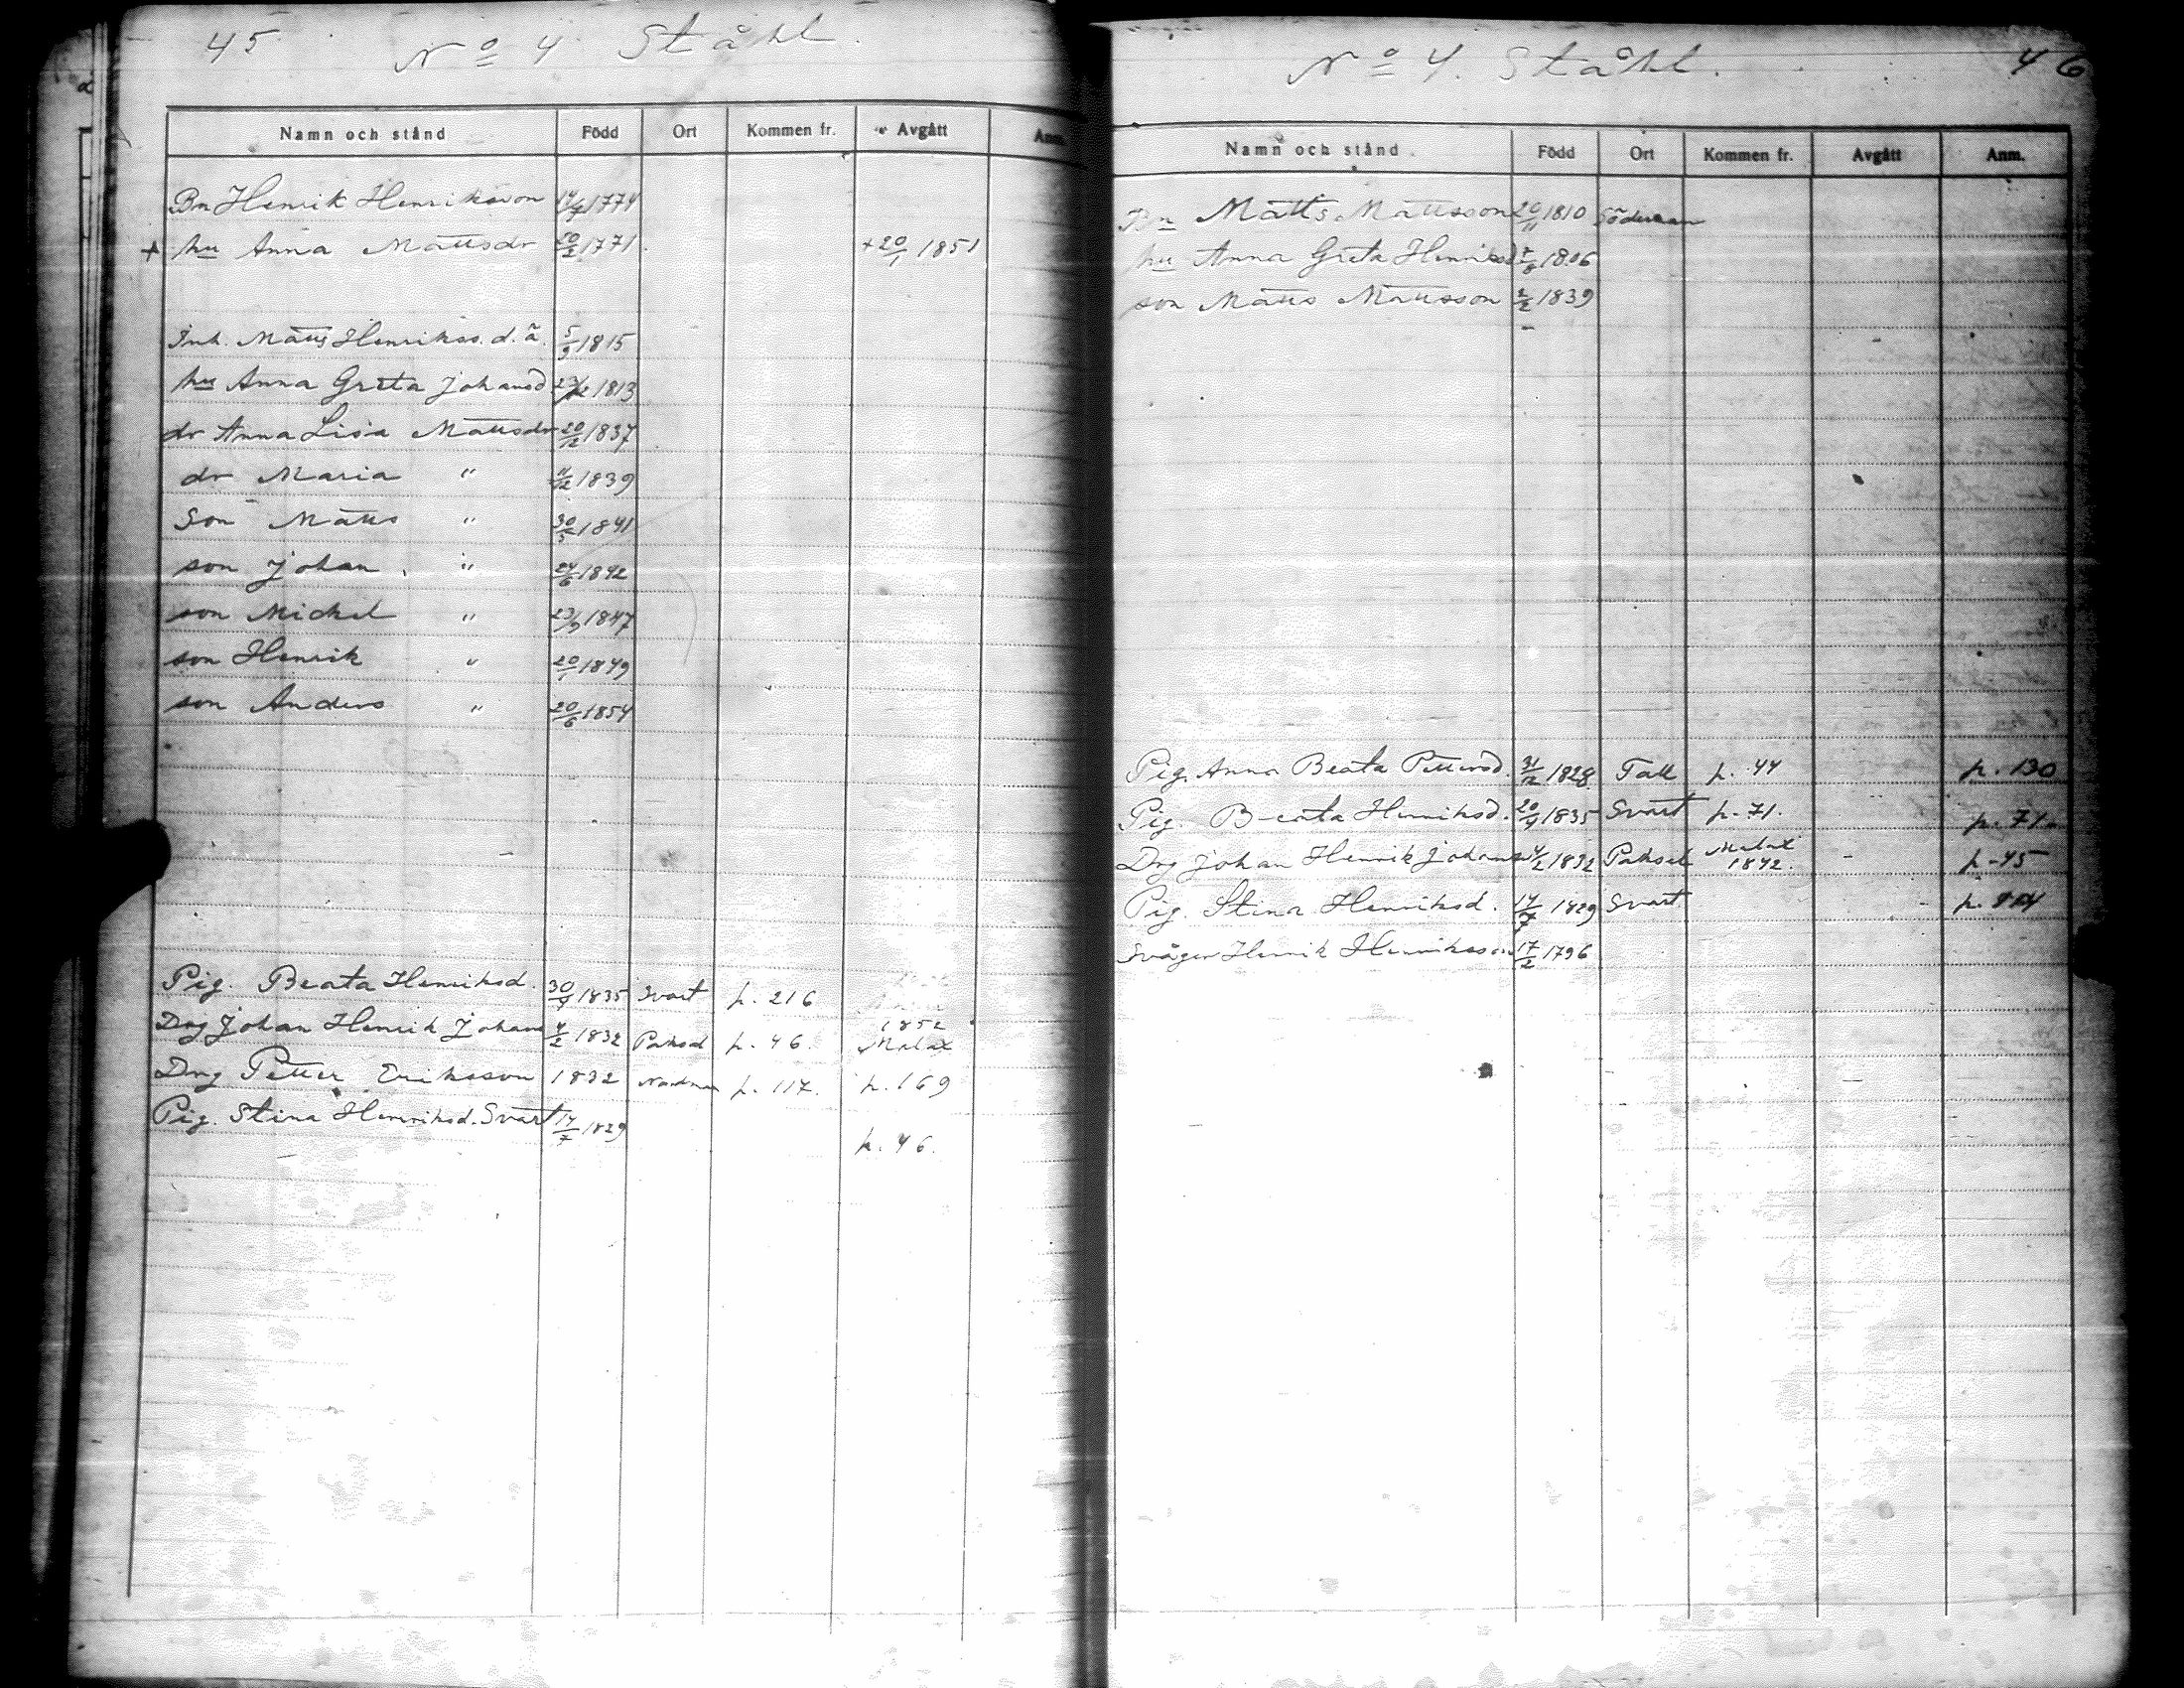 45 No 4 Ståhl.
Namn och stånd Född Ort Kommen fr. Avgått Anm.
Bn Henrik Henriksson 1774
+ hu Anna Mattsdr 1771 + 20/1 1851
Inh. Matts Henrikss. d. ä. 5/9 1815
hu Anna Greta Johansd 1813
dr Anna Lisa Mattsdr 20/12 1837
dr Maria " 11/12 1839
Son Matts " 30/3 1841
son Johan " 24/6 1842
son Mickel " 23/9 1847
son Henrik " 20/1 1849
son Anders " 20/6 1854
Pig. Beata Henriksd. 30/9 1835 Svart p. 216
Dng Johan Henrik Johans 4/2 1832 p. 46. 1852 Malax
Dng Petter Eriksson 1832 p. 117. p. 169
Pig. Stina Henriksd. Svart 14/7 1829 p. 46.
No 4. Ståhl. 46
Namn och stånd. Född Ort Kommen fr. Avgått Anm.
Bn Matts Mattsson 20/11 1810
hu Anna Greta Henriksd 1806
son Matts Mattsson 2/2 1839
Pig. Anna Beata Pettersd. 31/12 1828 Tall p. 44 p. 130
Pig. Beata Henriksd. 1835 Svart p. 71. p. 71.
Dng Johan Henrik Johans 4/2 1832 Malax 1842. p. 45
Pig. Stina Henriksd. 14/7 1829 Svart
Svåger Henrik Henriksson 17/2 1796